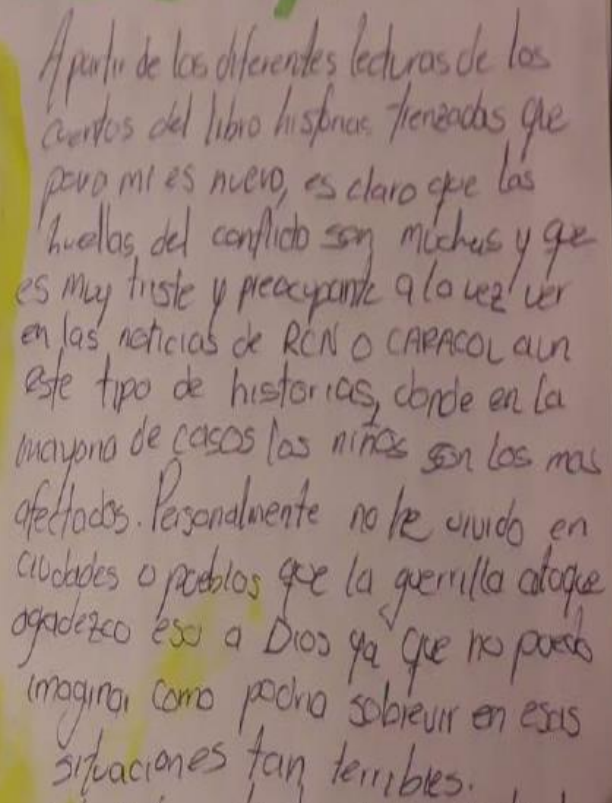 A partir de las diferentes lecturas de los
cuentos del libro historias trenzadas que
para mi es nuevo, es claro que las
huellas del conflicto son muchas y que
es muy triste y preocupante a la vez ver
en las noticias de RCN O CARACOL aun
este tipo de historias, donde en la
mayoria de casos los niños son los mas
afectados. Personalmente no he vivido en
ciudades o pueblos que la guerrilla ataque
agadezco eso a Dios ya que no puedo
imaginar como podria sobrevir en esas
situaciones tan terribles.